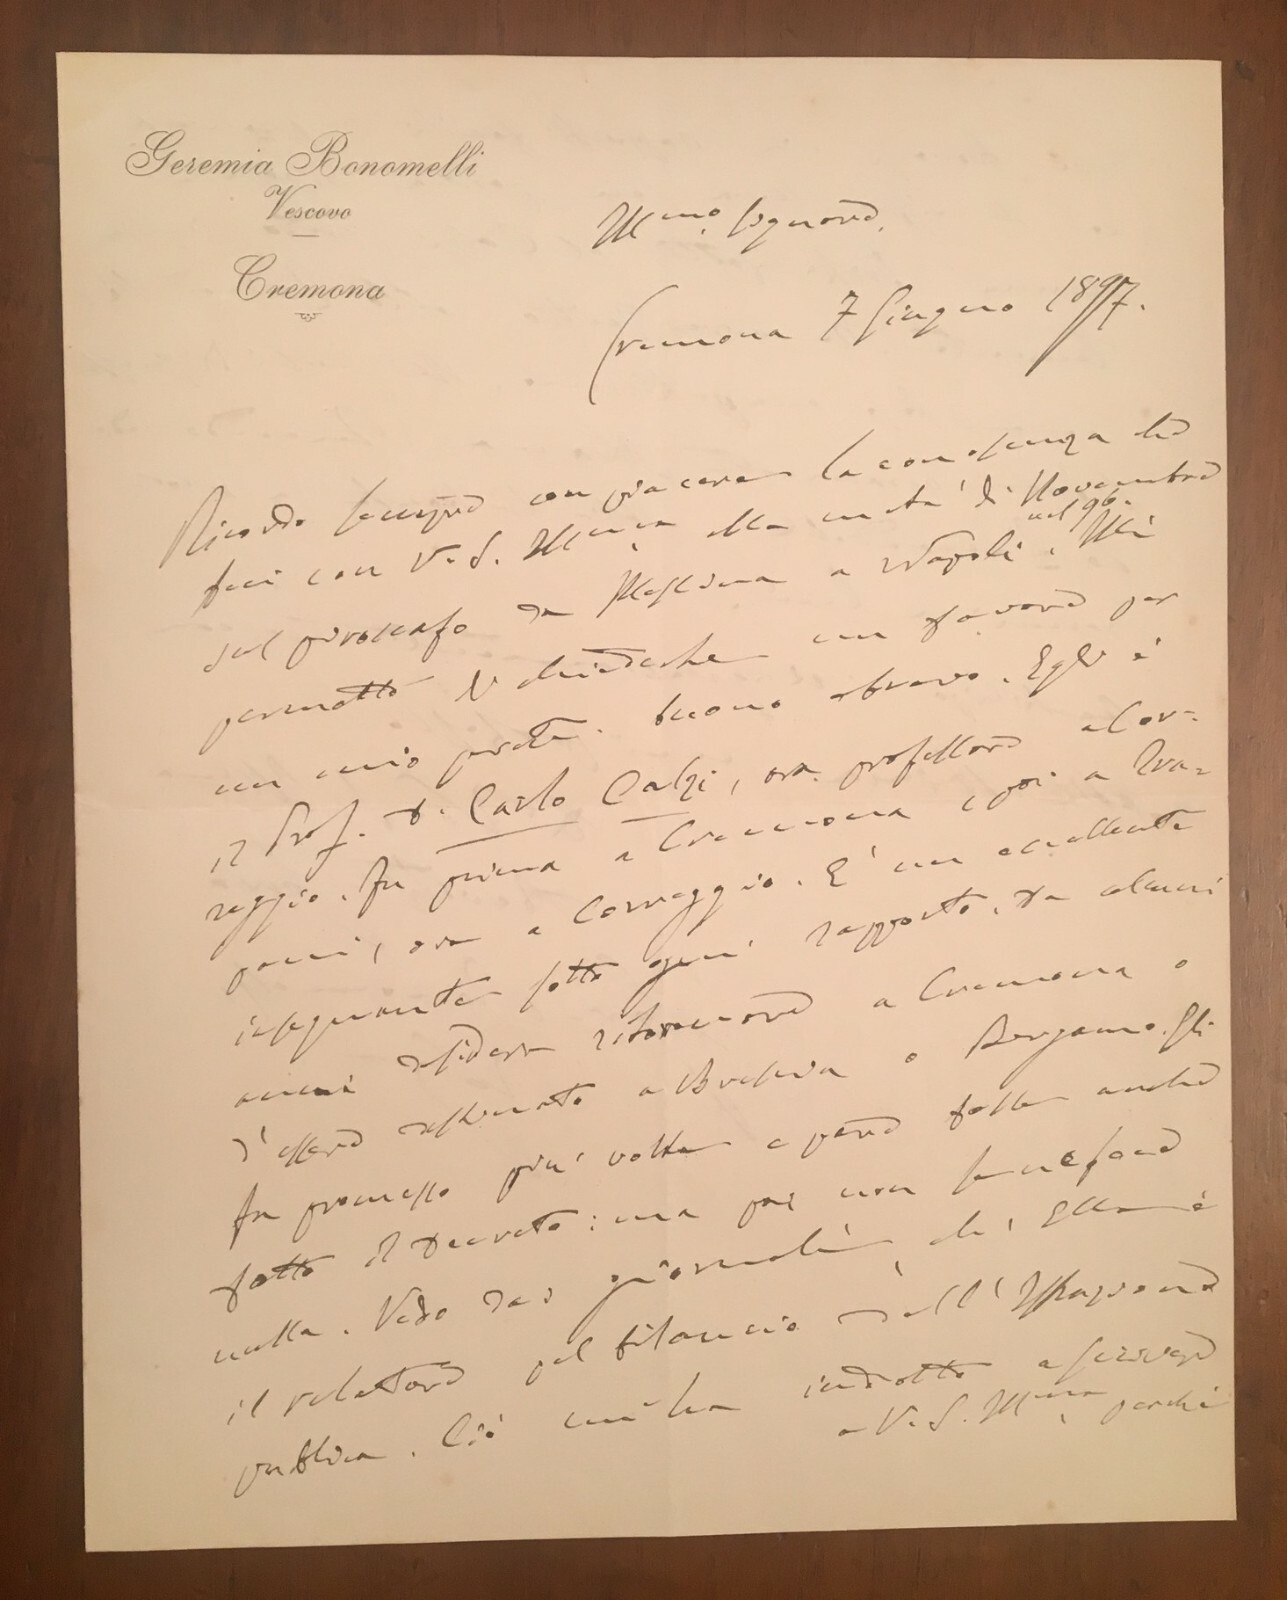 Geremia Bonomelli
Vescovo
Cremona
Ill.mo Signore,
Cremona 7 Giugno 1897.
Ricordo sempre con piacere la conoscenza che
feci con V. S. Ill.ma alla metà di Novembre
nel 96.
sul piroscafo da Messina a Napoli. Mi
permetta Le chiedere un favore per
un mio prete buono e bravo. Egli è
il Prof. D. Carlo Calzi, ora professore a Cor-
reggio. Fu prima a Cremona e poi a Tra-
pani, ora a Correggio. E' un eccellente
insegnante sotto ogni rapporto. Da alcuni
anni desidera ritornare a Cremona o
d'essere destinato a Brescia o Bergamo. Gli
fu promesso più volte e pare fosse anche
fatto il decreto: ma poi non se ne fece
nulla. Vedo dai giornali, ch' Ella è
il relatore pel bilancio dell' Istruzione
pubblica. Ciò mi ha indotto a scrivere
a V. S. Ill.ma, perchè